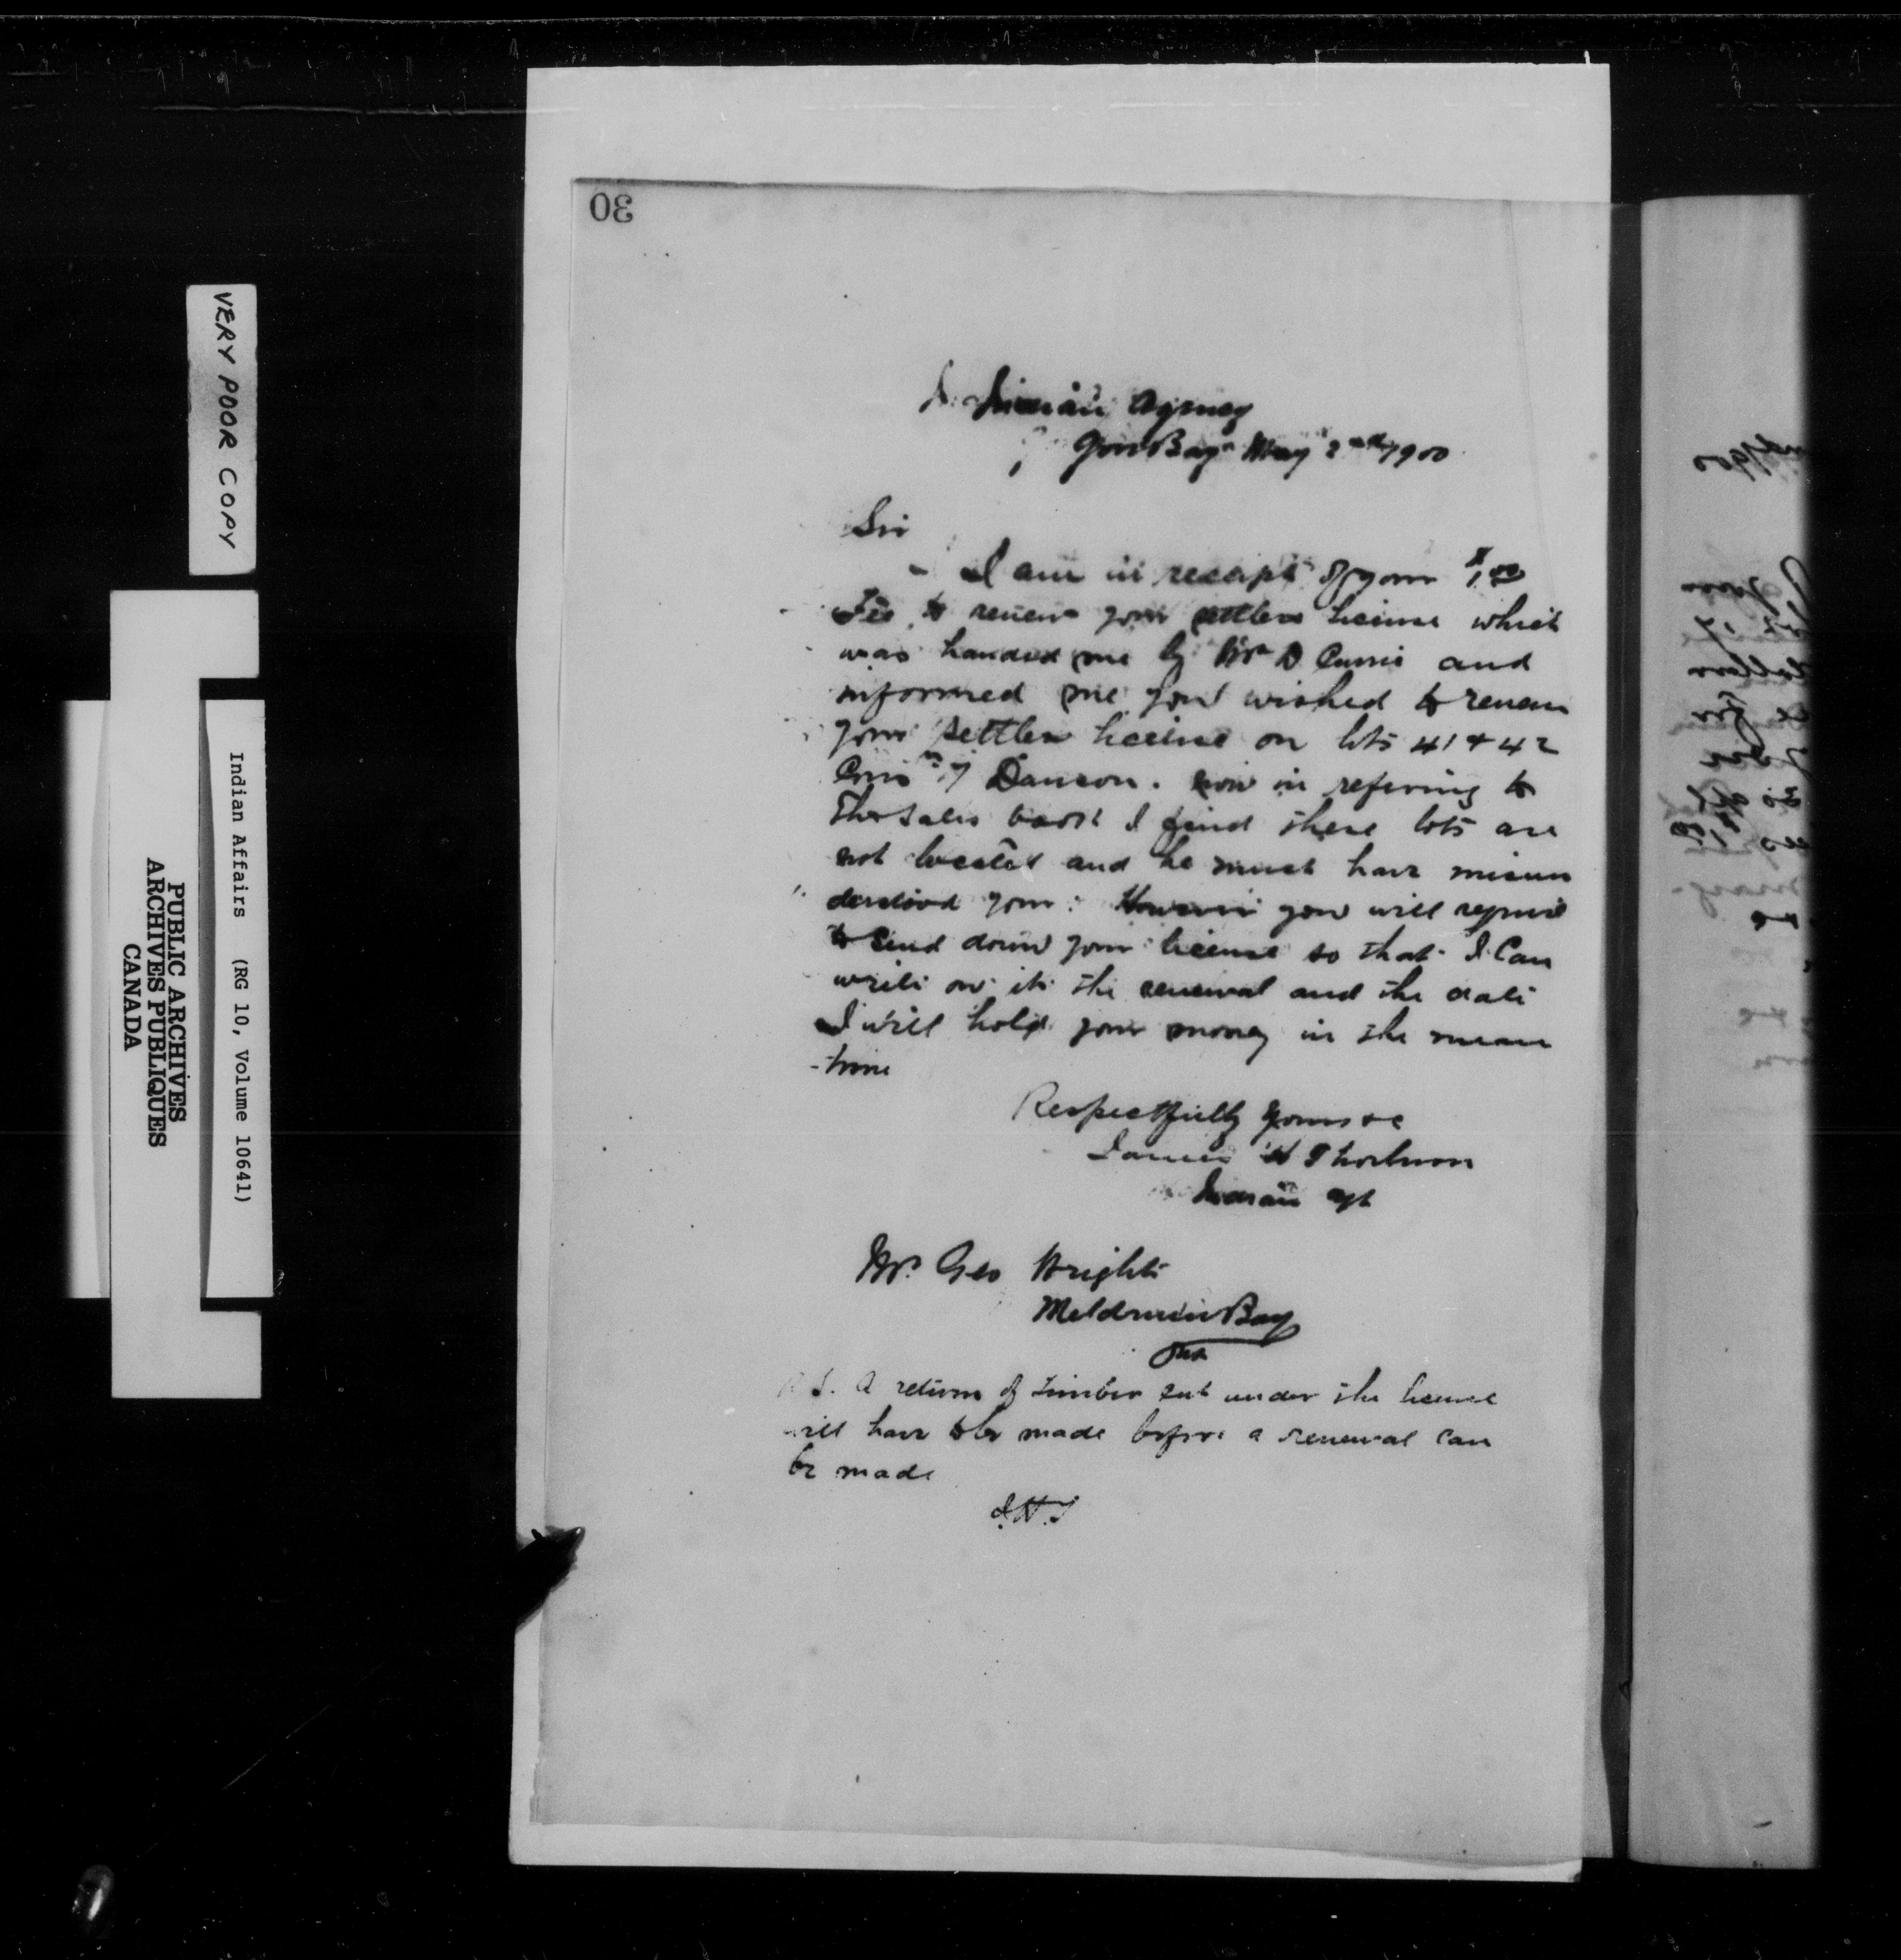 30
Indian Agency
Gore Bay May 2nd 1900
Sir
I am in receipt of your $1.00
Fee to renew your settlers license which
was handed me by Mr D Currie and
informed me you wished to renew
your settlers license on lots 41 & 42
Con Dawson. now in refering to
The Sales book I find these lots are
not located and he must have misun
derstood you. However you will require
to send down your license so that I Can
write on it the renewal and the date
I will hold your money in the mean
-time
Respectfully yours &c
James H Thorburn
Indian agt
Mr. Geo Wright
Meldrum Bay
Ont
P.S. A return of timber cut under the license
will have to be made before a renewal can
be made
J.H.T
VERY POOR COPY
Indian Affairs (RG 10, Volume 10641)
PUBLIC ARCHIVES
ARCHIVES PUBLIQUES
CANADA